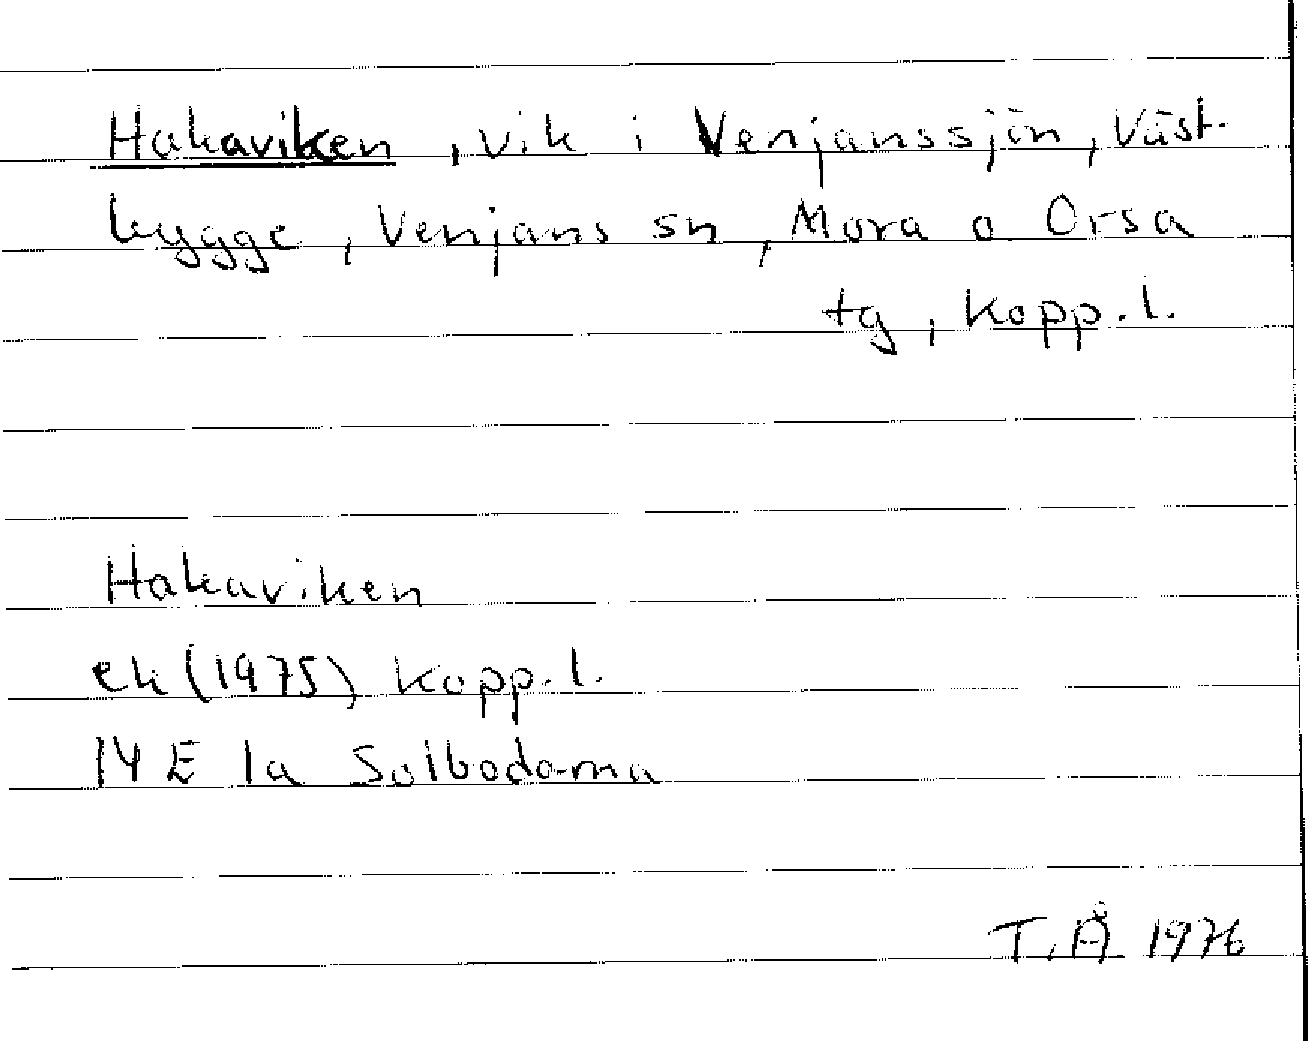 Hakaviken, vik i Venjanssjön, Väst-
bygge, Venjans sn, Mora o Orsa
tg, Kopp.l.
Hakaviken
ek(1975) Kopp.l.
14 E 1a Solbodarna
T.Å 1976